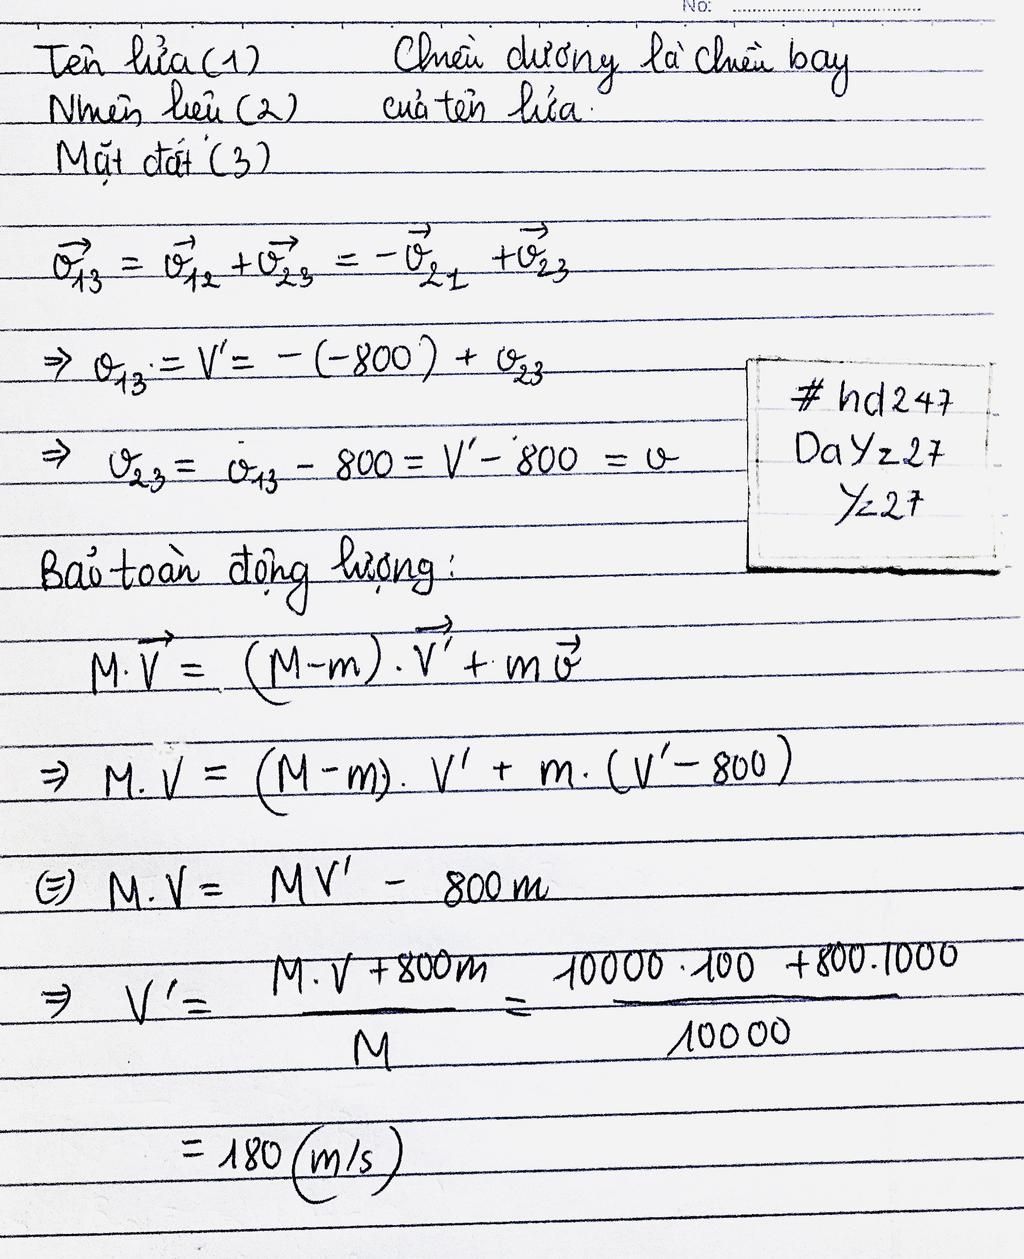 No: ...............................
Tên lửa (1) Chiều dương là chiều bay
Nhiên liệu (2) của tên lửa.
Mặt đất (3)
v⃗₁₃ = v⃗₁₂ + v⃗₂₃ = -v⃗₂₁ + v⃗₂₃
⇒ v₁₃ = V' = -(-800) + v₂₃
⇒ v₂₃ = v₁₃ - 800 = V' - 800 = v
# hd247
DaYz27
Yz27
Bảo toàn động lượng:
M.V⃗ = (M-m).V⃗' + m v⃗
⇒ M.V = (M-m). V' + m.(V'-800)
(=) M.V = MV' - 800m
⇒ V' = (M.V + 800m)/M = (10000.100 + 800.1000)/10000
= 180 (m/s)